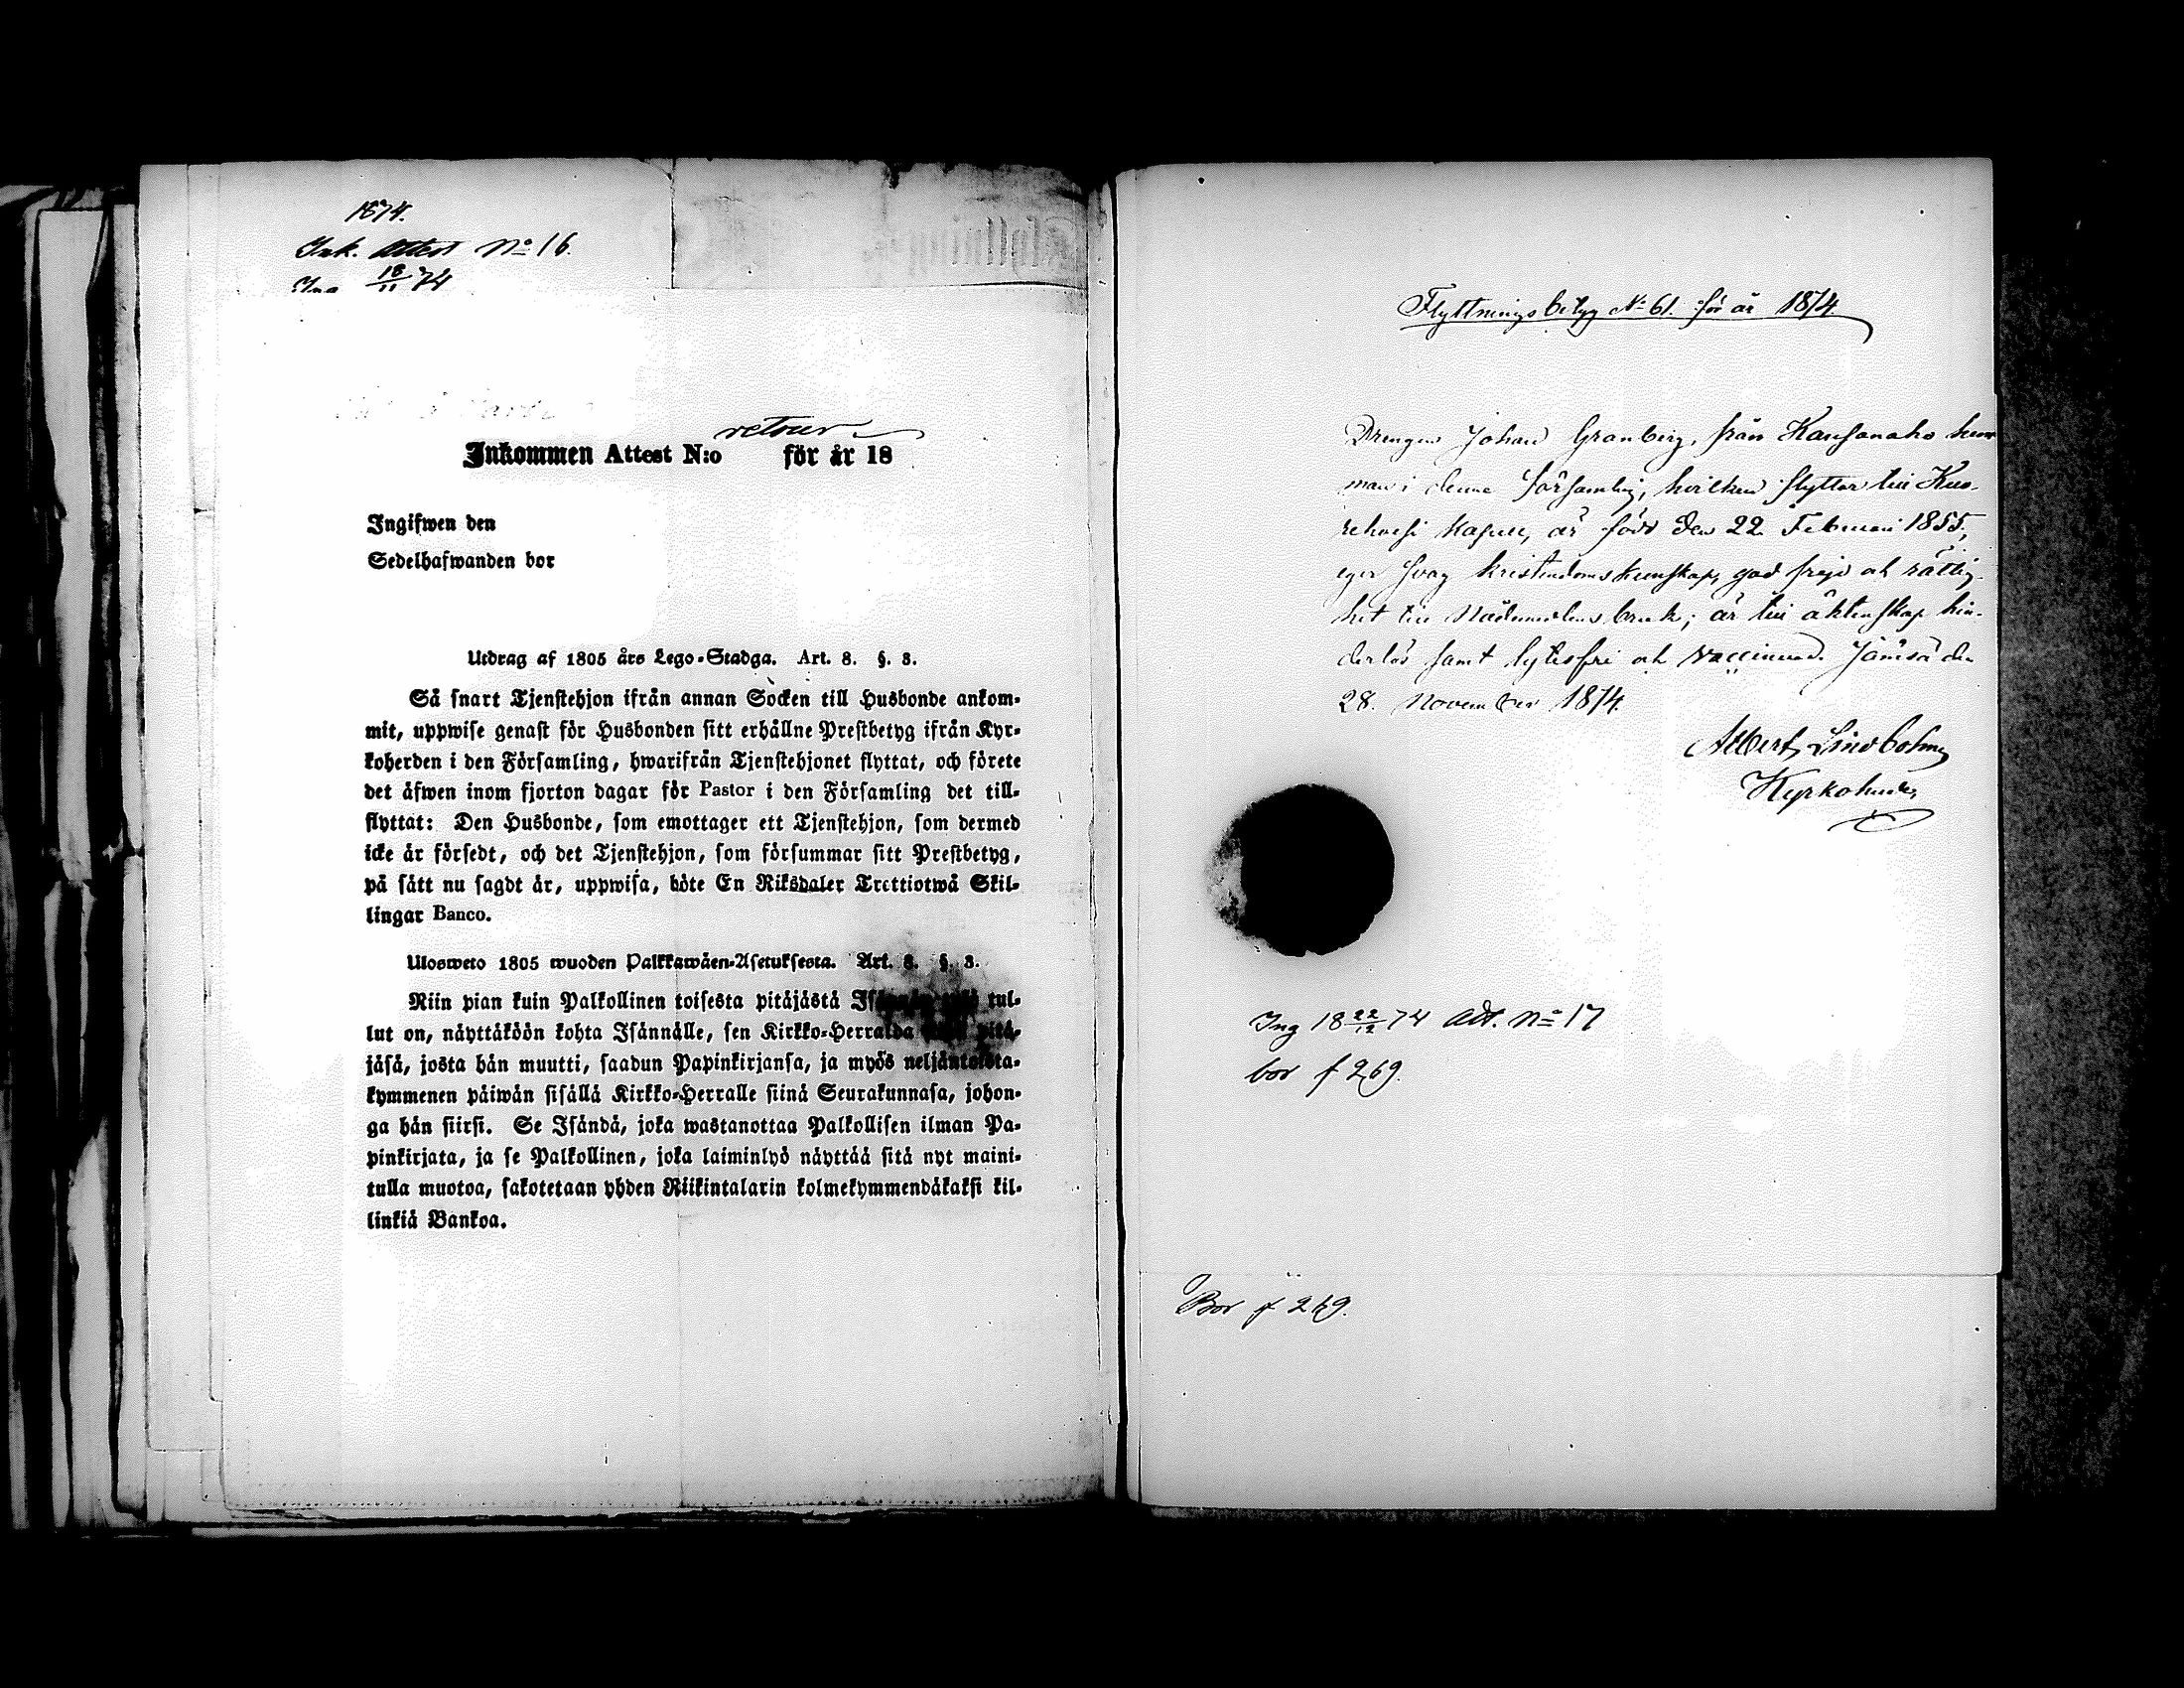 1874.
Ink. Attest No 16.
Ing 18/11 74
retour
Inkommen Attest N:o för år 18
Ingifwen den
Sedelhafwanden bor
Utdrag af 1805 års Lego-Stadga. Art. 8. §. 3.
Så snart Tjenstehjon ifrån annan Socken till Husbonde ankom-
mit, uppwise genast för Husbonden sitt erhållne Prestbetyg ifrån Kyr-
koherden i den Församling, hwarifrån Tjenstehjonet flyttat, och förete
det äfwen inom fjorton dagar för Pastor i den Församling det till-
flyttat: Den Husbonde, som emottager ett Tjenstehjon, som dermed
icke är försedt, och det Tjenstehjon, som försummar sitt Prestbetyg,
på sätt nu sagdt är, uppwisa, böte En Riksdaler Trettiotwå Skil-
lingar Banco.
Ulosweto 1805 wuoden Palkkawäen-Asetuksesta. Art. 8. §. 3.
Niin pian kuin Palkollinen toisesta pitäjästä tul-
lut on, näyttäköön kohta Isännälle, sen Kirkko-Herralda pitä-
jäsä, josta hän muutti, saadun Papinkirjansa, ja myös neljäntoista-
kymmenen päiwän sisällä Kirkko-Herralle siinä Seurakunnasa, johon-
ga hän siirsi. Se Isändä, joka wastanottaa Palkollisen ilman Pa-
pinkirjata, ja se Palkollinen, joka laiminlyö näyttää sitä nyt maini-
tulla muotoa, sakotetaan yhden Riikintalarin kolmekymmendäkaksi kil-
linkiä Bankoa.
Flyttningsbetyg No 61. för år 1874.
Drengen Johan Granberg, från Kansanaho hem-
man i denna församling, hvilken flyttar till Kuo-
revesi kapell, är född den 22 Februari 1855,
eger svag kristendomskunskap, god frejd och rättig-
het till Nådemedlens bruk; är till äktenskap hin-
derlös samt lytesfri och vaccinerad. Jämsä den
28. November 1874.
Albert Lindbohm
Kyrkoherde
Ing 18 22/12 74 Att. No 17
bor f 269.
Bor f 269.